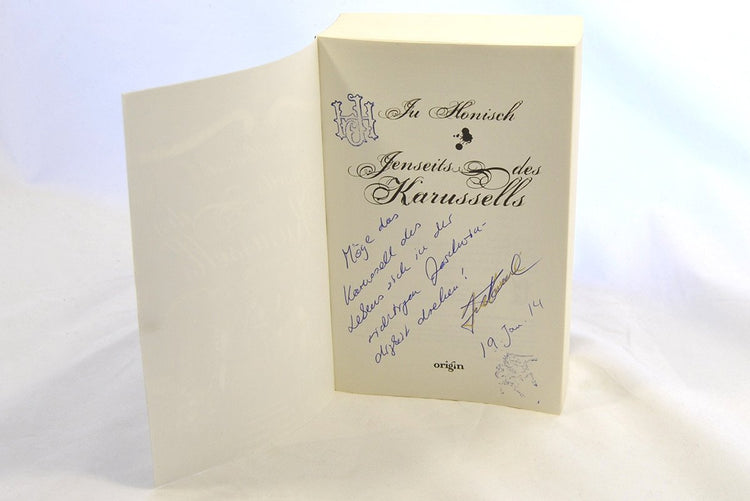 JH
Ju Honisch
Jenseits des
Karussells
Möge das
Karussell des
Lebens sich in der
richtigen Geschwin-
digkeit drehen!
19. Jan. 14
origin